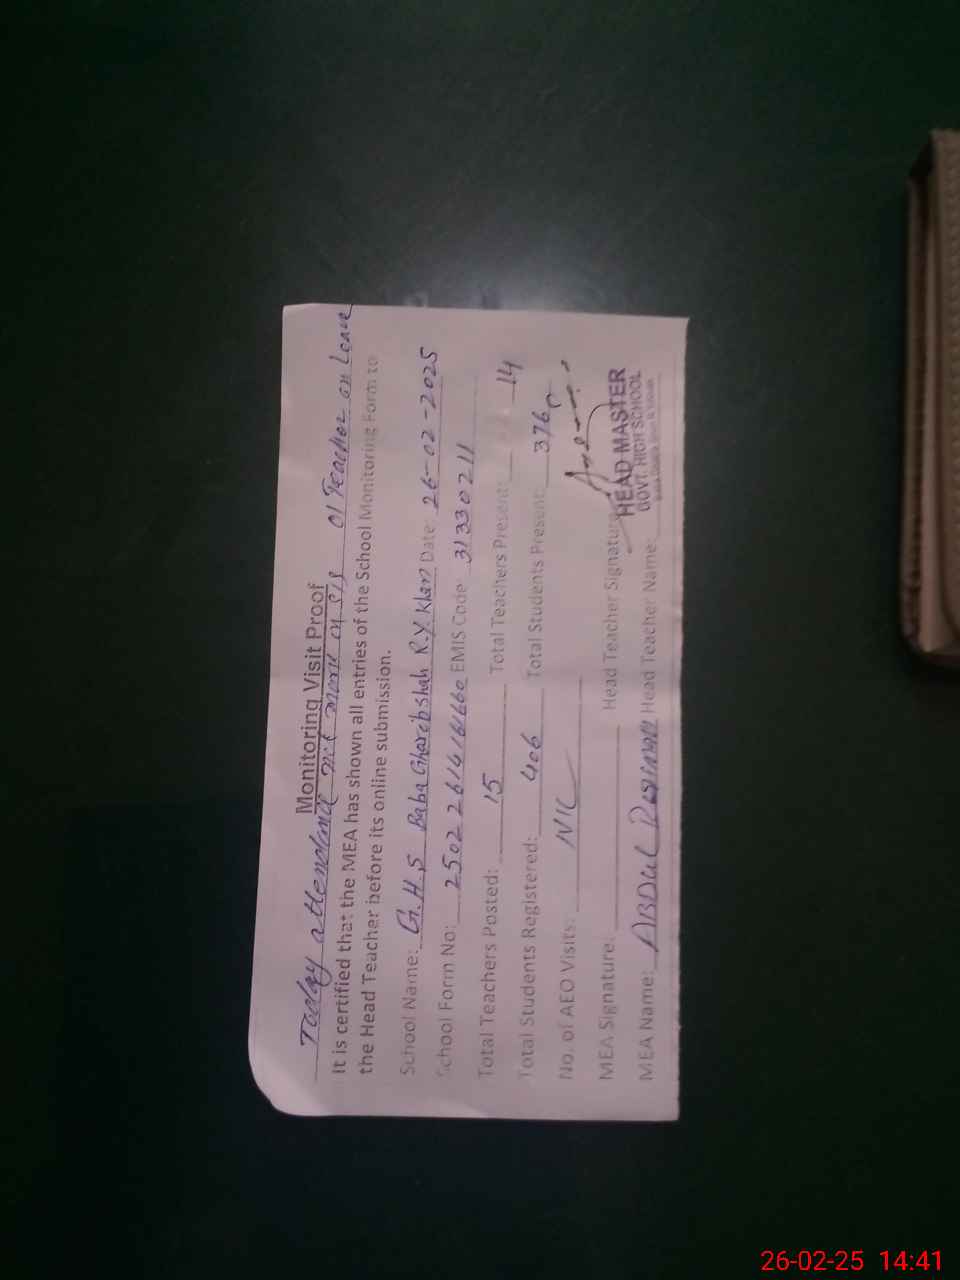 Monitoring Visit Proof
Today attendance not mark on SIS 01 Teacher on Leave
It is certified that the MEA has shown all entries of the School Monitoring Form to
the Head Teacher before its online submission.
School Name: G.H.S Baba Gharib shah R.Y.Khan Date: 26-02-2025
School Form No: 2502 2614161660 EMIS Code: 31330211
Total Teachers Posted: 15 Total Teachers Present: 14
Total Students Registered: 406 Total Students Present: 376
No. of AEO Visits: NIL
MEA Signature: Head Teacher Signature
HEAD MASTER
GOVT. HIGH SCHOOL
MEA Name: ABDUL Head Teacher Name:
26-02-25 14:41